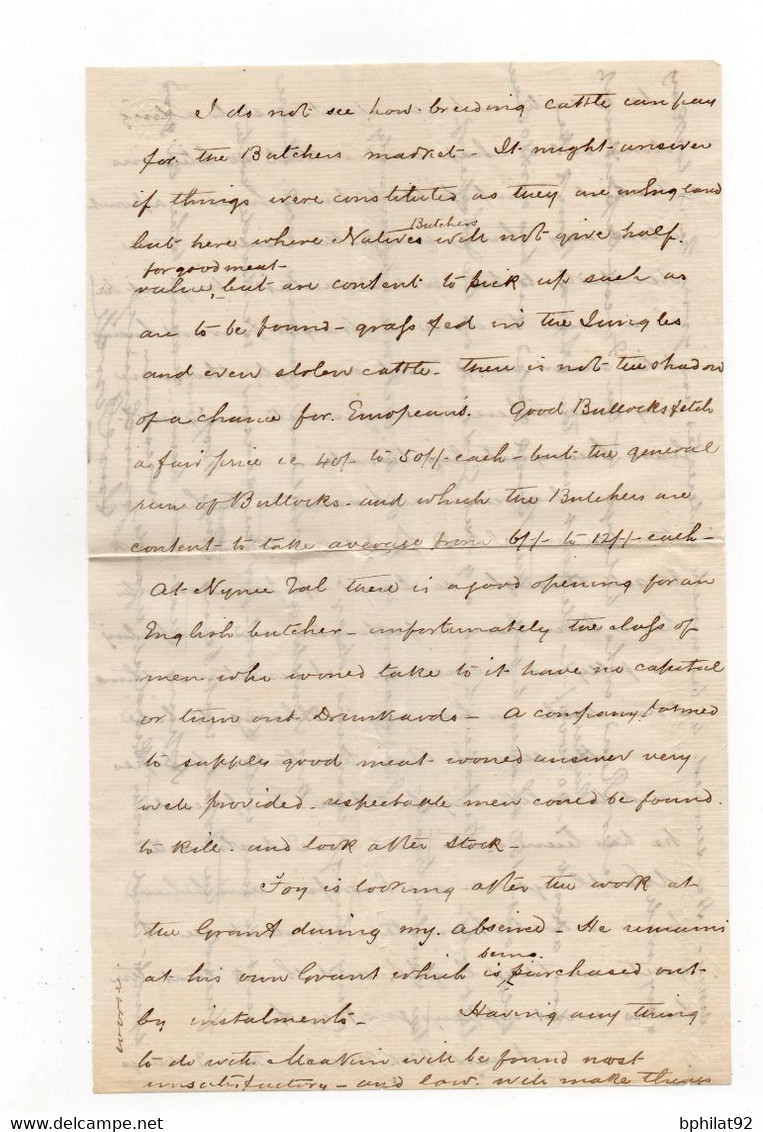 I do not see how breeding cattle can pay
for the Butchers market - It might answer
if things were constituted as they are in England
Butchers
but here where Natives will not give half
for good meat
value, but are content to pick up such as
are to be found - grass fed in the Jungles
and even stolen cattle - there is not the shadow
of a chance for Europeans. Good Bullocks fetch
a fair price ie 40/- to 50/- each - but the general
run of Bullocks - and which the Butchers are
content to take average from 6/- to 12/- each -
At Nynee Tal there is a good opening for an
English butcher - unfortunately the class of
men who would take to it have no capital
or turn out Drunkards - A company formed
to supply good meat would answer very
well provided respectable men could be found
to kill and look after stock -
Joy is looking after the work at
the Grant during my absence - He remains
being
at his own Grant which is purchased out
by instalments - Having any thing
to do with will be found most
unsatisfactory - and law will make things
worse.
bphilat92